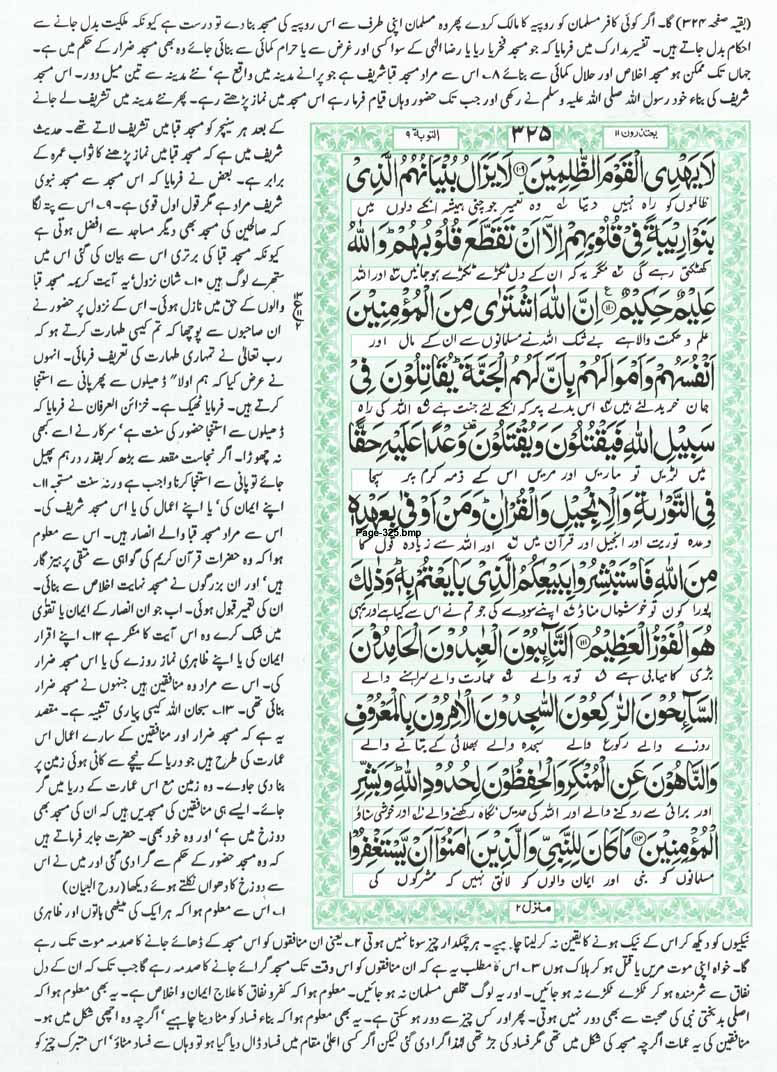 (بقیہ صفحہ ۳۲۴) گا۔ اگر کوئی کافر مسلمان کو روپیہ کا مالک کردے پھر وہ مسلمان اپنی طرف سے اس روپیہ کی مسجد بنا دے تو درست ہے کیونکہ ملکیت بدل جانے سے
احکام بدل جاتے ہیں۔ تفسیر مدارک میں فرمایا کہ جو مسجد فخریا ریا یا رضا الٰہی کے سوا کسی اور غرض سے یا حرام کمائی سے بنائی جائے وہ بھی مسجد ضرار کے حکم میں ہے۔
جہاں تک ممکن ہو مسجد اخلاص اور حلال کمائی سے بنائے ۸؎ اس سے مراد مسجد قبا شریف ہے جو پرانے مدینہ میں واقع ہے' نئے مدینہ سے تین میل دور۔ اس مسجد
شریف کی بناء خود رسول اللہ صلی اللہ علیہ وسلم نے رکھی اور جب تک حضور وہاں قیام فرما رہے اس مسجد میں نماز پڑھتے رہے۔ پھر نئے مدینہ میں تشریف لے جانے
کے بعد ہر سنیچر کو مسجد قبا میں تشریف لاتے تھے۔ حدیث
شریف میں ہے کہ مسجد قبا میں نماز پڑھنے کا ثواب عمرہ کے
برابر ہے۔ بعض نے فرمایا کہ اس سے مسجد نبوی
شریف مراد ہے مگر قول اول قوی ہے۔ ۹؎ اس سے پتہ لگا
کہ صالحین کی مسجد بھی دیگر مساجد سے افضل ہوتی ہے
کیونکہ مسجد قبا کی برتری اس سے بیان کی گئی اس میں
ستھرے لوگ ہیں ۱۰؎ شان نزول' یہ آیت کریمہ مسجد قبا
والوں کے حق میں نازل ہوئی۔ اس کے نزول پر حضور نے
ان صاحبوں سے پوچھا کہ تم کیسی طہارت کرتے ہو کہ
رب تعالیٰ نے تمہاری طہارت کی تعریف فرمائی۔ انہوں
نے عرض کیا کہ ہم اولاً ڈھیلوں سے پھر پانی سے استنجا
کرتے ہیں۔ فرمایا ٹھیک ہے۔ خزائن العرفان نے فرمایا کہ
ڈھیلوں سے استنجا حضور کی سنت ہے' سرکار نے اسے کبھی
نہ چھوڑا۔ اگر نجاست مقعد سے بڑھ کر بقدر درہم پھیل
جائے تو پانی سے استنجا کرنا واجب ہے ورنہ سنت مستحبہ ۱۱؎
اپنے ایمان کی' یا اپنے اعمال کی یا اس مسجد شریف کی۔
اس سے مراد مسجد قبا والے انصار ہیں۔ اس سے معلوم
ہوا کہ وہ حضرات قرآن کریم کی گواہی سے متقی پرہیزگار
ہیں' اور ان بزرگوں نے مسجد نہایت اخلاص سے بنائی۔
ان کی تعمیر قبول ہوئی۔ اب جو ان انصار کے ایمان یا تقوٰی
میں شک کرے وہ اس آیت کا منکر ہے ۱۲؎ اپنے اقرار
ایمان کی یا اپنے ظاہری نماز روزے کی یا اس مسجد
کی۔ اس سے مراد وہ منافقین ہیں جنہوں نے مسجد ضرار
بنائی تھی۔ ۱۳؎ سبحان اللہ کیسی پیاری تشبیہ ہے۔ مقصد
یہ ہے کہ مسجد ضرار اور منافقین کے سارے اعمال اس
عمارت کی طرح ہیں جو دریا کے نیچے سے کاٹی ہوئی زمین پر
بنا دی جاوے۔ وہ زمین مع اس عمارت کے دریا میں گر
جائے۔ ایسے ہی منافقین کی مسجدیں ہیں کہ ان کی مسجد بھی
دوزخ میں ہے' اور وہ خود بھی۔ حضرت جابر فرماتے ہیں
کہ وہ مسجد حضور کے حکم سے گرا دی گئی اور میں نے اس
سے دوزخ کا دھواں نکلتے ہوئے دیکھا (روح البیان)
۱؎ اس سے معلوم ہوا کہ ہر ایک کی میٹھی باتوں اور ظاہری
یعتذرون ۱۱ ۳۲۵ التوبۃ ۹
لَا یَهْدِی الْقَوْمَ الظّٰلِمِیْنَ ﴿۱۰۹﴾ لَا یَزَالُ بُنْیَانُهُمُ الَّذِیْ
ظالموں کو راہ نہیں دیتا وہ تعمیر جو چنی ہمیشہ انکے دلوں میں
بَنَوْا رِیْبَةً فِیْ قُلُوْبِهِمْ اِلَّاۤ اَنْ تَقَطَّعَ قُلُوْبُهُمْ ؕ وَاللّٰهُ
کھٹکتی رہے گی مگر یہ کہ ان کے دل ٹکڑے ٹکڑے ہو جائیں اور اللہ
عَلِیْمٌ حَكِیْمٌ ﴿۱۱۰﴾ اِنَّ اللّٰهَ اشْتَرٰی مِنَ الْمُؤْمِنِیْنَ
علم و حکمت والا ہے بے شک اللہ نے مسلمانوں سے ان کے مال اور
اَنْفُسَهُمْ وَاَمْوَالَهُمْ بِاَنَّ لَهُمُ الْجَنَّةَ ؕ یُقَاتِلُوْنَ فِیْ
جان خرید لئے ہیں اس بدلے پر کہ انکے لئے جنت ہے اللہ کی راہ
سَبِیْلِ اللّٰهِ فَیَقْتُلُوْنَ وَیُقْتَلُوْنَ وَعْدًا عَلَیْهِ حَقًّا
میں لڑیں تو ماریں اور مریں اس کے ذمہ کرم پر سچا
فِی التَّوْرٰىةِ وَالْاِنْجِیْلِ وَالْقُرْاٰنِ ؕ وَمَنْ اَوْفٰی بِعَهْدِهٖ
Page-325.bmp
وعدہ توریت اور انجیل اور قرآن میں اور اللہ سے زیادہ قول کا
مِنَ اللّٰهِ فَاسْتَبْشِرُوْا بِبَیْعِكُمُ الَّذِیْ بَایَعْتُمْ بِهٖ ؕ وَذٰلِكَ
پورا کون تو خوشیاں مناؤ اپنے سودے کی جو تم نے اس سے کیا ہے اور یہی
هُوَ الْفَوْزُ الْعَظِیْمُ ﴿۱۱۱﴾ اَلتَّآىِٕبُوْنَ الْعٰبِدُوْنَ الْحَامِدُوْنَ
بڑی کامیابی ہے توبہ والے عبادت والے سراہنے والے
السَّآىِٕحُوْنَ الرّٰكِعُوْنَ السّٰجِدُوْنَ الْاٰمِرُوْنَ بِالْمَعْرُوْفِ
روزے والے رکوع والے سجدہ والے بھلائی کے بتانے والے
وَالنَّاهُوْنَ عَنِ الْمُنْكَرِ وَالْحٰفِظُوْنَ لِحُدُوْدِ اللّٰهِ ؕ وَبَشِّرِ
اور برائی سے روکنے والے اور اللہ کی حدیں نگاہ رکھنے والے اور خوشی سناؤ
الْمُؤْمِنِیْنَ ﴿۱۱۲﴾ مَا كَانَ لِلنَّبِیِّ وَالَّذِیْنَ اٰمَنُوْۤا اَنْ یَّسْتَغْفِرُوْا
مسلمانوں کو نبی اور ایمان والوں کو لائق نہیں کہ مشرکوں کی
منزل ۲
نیکیوں کو دیکھ کر اس کے نیک ہونے کا یقین نہ کرلینا چاہیے۔ ہر چمکدار چیز سونا نہیں ہوتی ۲؎ یعنی ان منافقوں کو اس مسجد کے ڈھائے جانے کا صدمہ موت تک رہے
گا۔ خواہ اپنی موت مریں یا قتل ہو کر ہلاک ہوں ۳؎ اس کا مطلب یہ ہے کہ ان منافقوں کو اس وقت تک مسجد گرائے جانے کا صدمہ رہے گا جب تک کہ ان کے دل
نفاق سے شرمندہ ہو کر ٹکڑے ٹکڑے نہ ہو جائیں۔ اور یہ لوگ مخلص مسلمان نہ ہو جائیں۔ معلوم ہوا کہ کفر و نفاق کا علاج ایمان و اخلاص ہے۔ یہ بھی معلوم ہوا کہ
اصلی بدبختی نبی کی صحبت سے بھی دور نہیں ہوتی۔ پھر اور کس چیز سے دور ہو سکتی ہے۔ یہ بھی معلوم ہوا کہ بناء فساد کو مٹا دینا چاہیے' اگرچہ وہ اچھی شکل میں ہو۔
منافقین کی یہ عمارت اگرچہ مسجد کی شکل میں تھی مگر فساد کی جڑ تھی لہٰذا گرا دی گئی لیکن اگر کسی اعلیٰ مقام میں فساد ڈال دیا گیا ہو تو وہاں سے فساد مٹاؤ' اس متبرک چیز کو